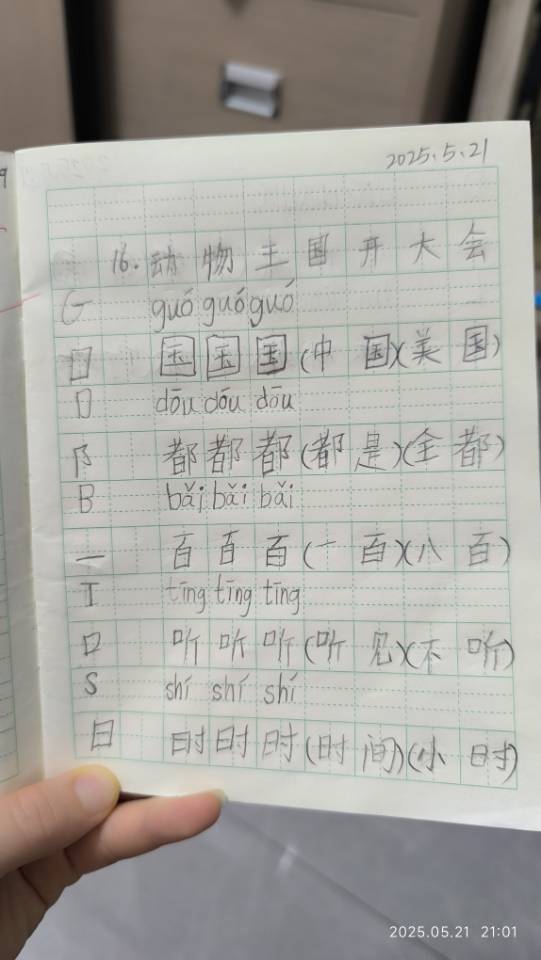 2025.5.21
16.动物王国开大会
G guó guó guó
囗 国 国 国(中国)(美国)
D dōu dōu dōu
阝 都 都 都(都是)(全都)
B bǎi bǎi bǎi
一 百 百 百(一百)(八百)
T tīng tīng tīng
口 听 听 听(听见)(不听)
S shí shí shí
日 时 时 时(时间)(小时)
2025.05.21 21:01